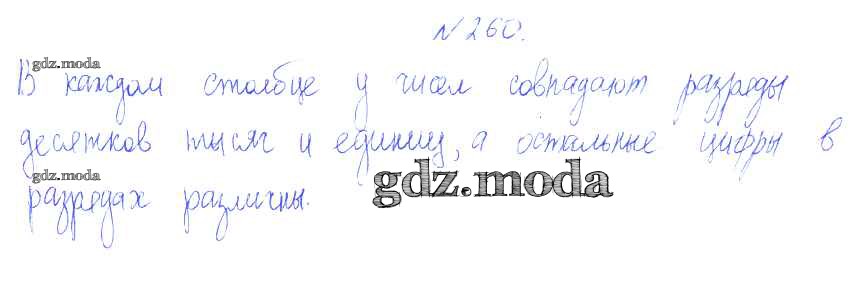 № 260.
gdz.moda
В каждом столбце у чисел совпадают разряды
десятков тысяч и единиц, а остальные цифры в
gdz.moda
gdz.moda
разрядах различны.